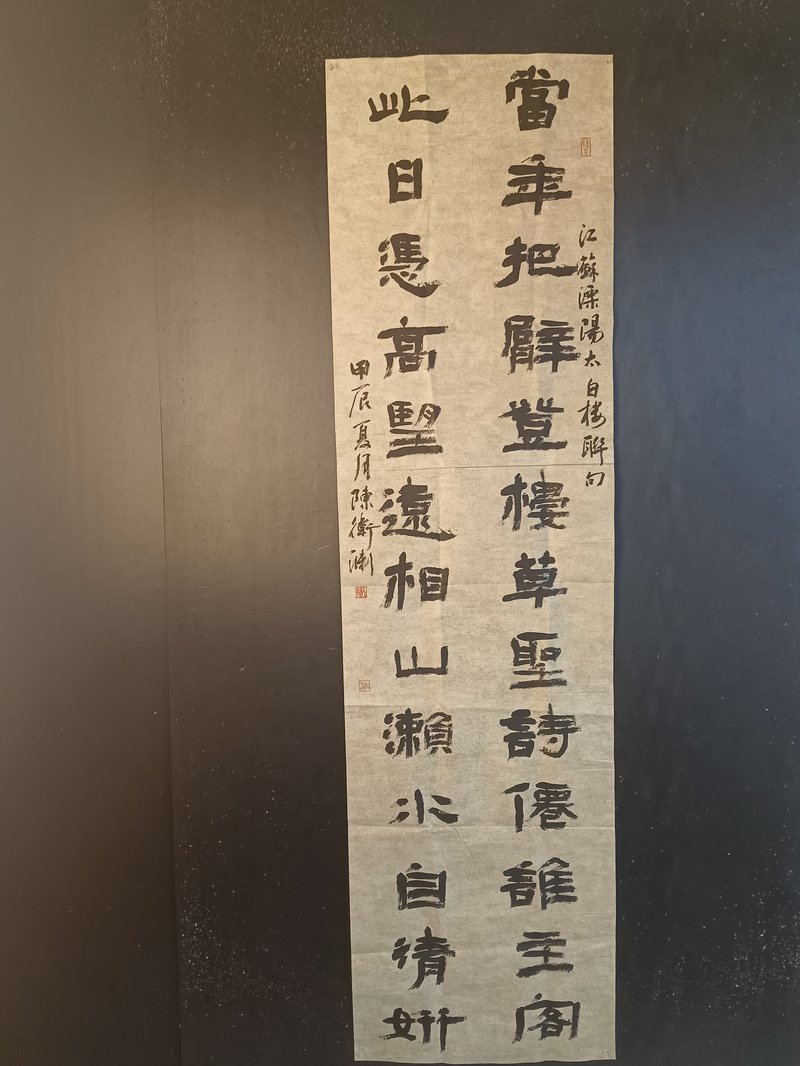 當年把臂登樓草聖詩僊誰主客
江蘇溧陽太白楼聯句
此日憑高望遠相山瀨水自清妍
甲辰夏月陳衛